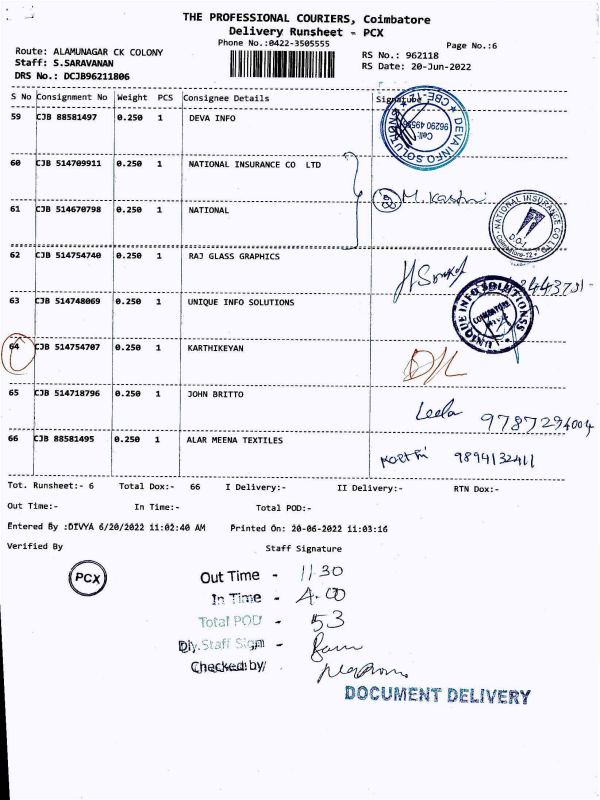 THE PROFESSIONAL COURIERS, Coimbatore
Delivery Runsheet - PCX
Phone No.:0422-3505555
Page No.:6
Route: ALAMUNAGAR CK COLONY
RS No.: 962118
Staff: S.SARAVANAN
RS Date: 20-Jun-2022
DRS No.: DCJB96211806
S No Consignment No Weight PCS Consignee Details Signature
59 CJB 88581497 0.250 1 DEVA INFO
DEVA INFO SOLUTIONS CBE-12
Cell:
60 CJB 514709911 0.250 1 NATIONAL INSURANCE CO LTD
M. Kasthri
61 CJB 514670798 0.250 1 NATIONAL
NATIONAL INSURANCE CO LTD
62 CJB 514754740 0.250 1 RAJ GLASS GRAPHICS
63 CJB 514748069 0.250 1 UNIQUE INFO SOLUTIONS
UNIQUE INFO SOLUTIONSS
COIMBATORE
64 CJB 514754707 0.250 1 KARTHIKEYAN
D/L
65 CJB 514718796 0.250 1 JOHN BRITTO
Leela 9787294004
66 CJB 88581495 0.250 1 ALAR MEENA TEXTILES
9894132411
Tot. Runsheet:- 6 Total Dox:- 66 I Delivery:- II Delivery:- RTN Dox:-
Out Time:- In Time:- Total POD:-
Entered By :DIVYA 6/20/2022 11:02:40 AM Printed On: 20-06-2022 11:03:16
Verified By Staff Signature
PCX
Out Time - 11.30
In Time - 4.00
Total POD - 53
Dly.Staff Sign -
Checked by
DOCUMENT DELIVERY